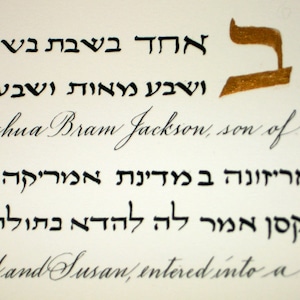 באחד בשבת בש
ושבע מאות ושבע
hua Bram Jackson, son of
ריזונה במדינת אמריקה
קסן אמר לה להדא בתולת
and Susan, entered into a